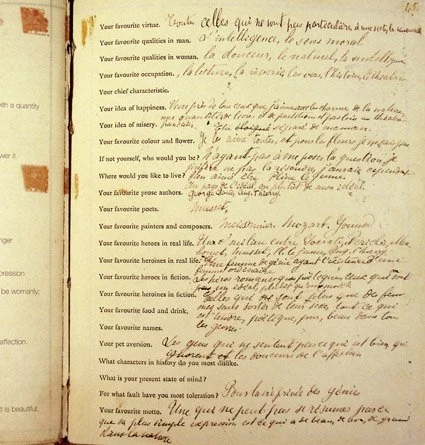 45.
Your favourite virtue. Toutes celles qui ne sont pas particulières à une secte, les universelles
Your favourite qualities in man. L'intelligence, le sens moral
Your favourite qualities in woman. la douceur, le naturel, l'intelligence
Your favourite occupation. La lecture, la rêverie, les vers, l'histoire, le théâtre
Your chief characteristic.
Your idea of happiness. Vivre près de tous ceux que j'aime avec les charmes de la nature
une quantité de livres et de partitions, et pas loin un théâtre
français.
Your idea of misery. Etre séparé de maman.
Your favourite colour and flower. Je les aime toutes, et pour les fleurs, je ne sais pas
If not yourself, who would you be? N'ayant pas à me poser la question, je
préfère ne pas la résoudre. J'aurais cependant
bien aimé être Pline le jeune.
Where would you like to live? Au pays de l'idéal, ou plutôt de mon idéal.
Your favourite prose authors. George Sand, Aug. Thierry
Your favourite poets. Musset.
Your favourite painters and composers. Meissonier, Mozart, Gounod
Your favourite heroes in real life. Un milieu entre Socrate, Périclès,
Musset, Pline le jeune, Aug. Thierry
Your favourite heroines in real life. Une femme de génie ayant l'existence d'une
femme ordinaire
Your favourite heroes in fiction. Les héros romanesques poétiques, ceux qui sont
un idéal plutôt qu'un modèle
Your favourite heroines in fiction. Celles qui sont plus que des femmes
sans sortir de leur sexe, tout ce qui
Your favourite food and drink. est tendre, poétique, pur, beau dans tous
les genres
Your favourite names.
Your pet aversion. Les gens qui ne sentent pas ce qui est bien, qui
ignorent les douceurs de l'affection
What characters in history do you most dislike.
What is your present state of mind?
For what fault have you most toleration? Pour la vie privée des génies
Your favourite motto. Une qui ne peut pas se résumer parce
que sa plus simple expression est ce qui a de beau, de bon, de grand
dans la nature
with a quantity
wer it.
nger
pression
be womanly,
affection.
t is beautiful,